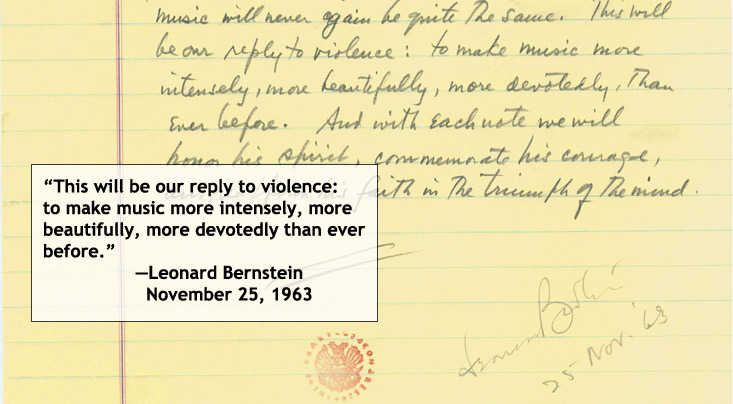 music will never again be quite the same. This will
be our reply to violence: to make music more
intensely, more beautifully, more devotedly, than
ever before. And with each note we will
honor his spirit, commemorate his courage,
faith in the triumph of the mind.
“This will be our reply to violence:
to make music more intensely, more
beautifully, more devotedly than ever
before.”
—Leonard Bernstein
November 25, 1963
Leonard Bernstein
25 Nov. '63